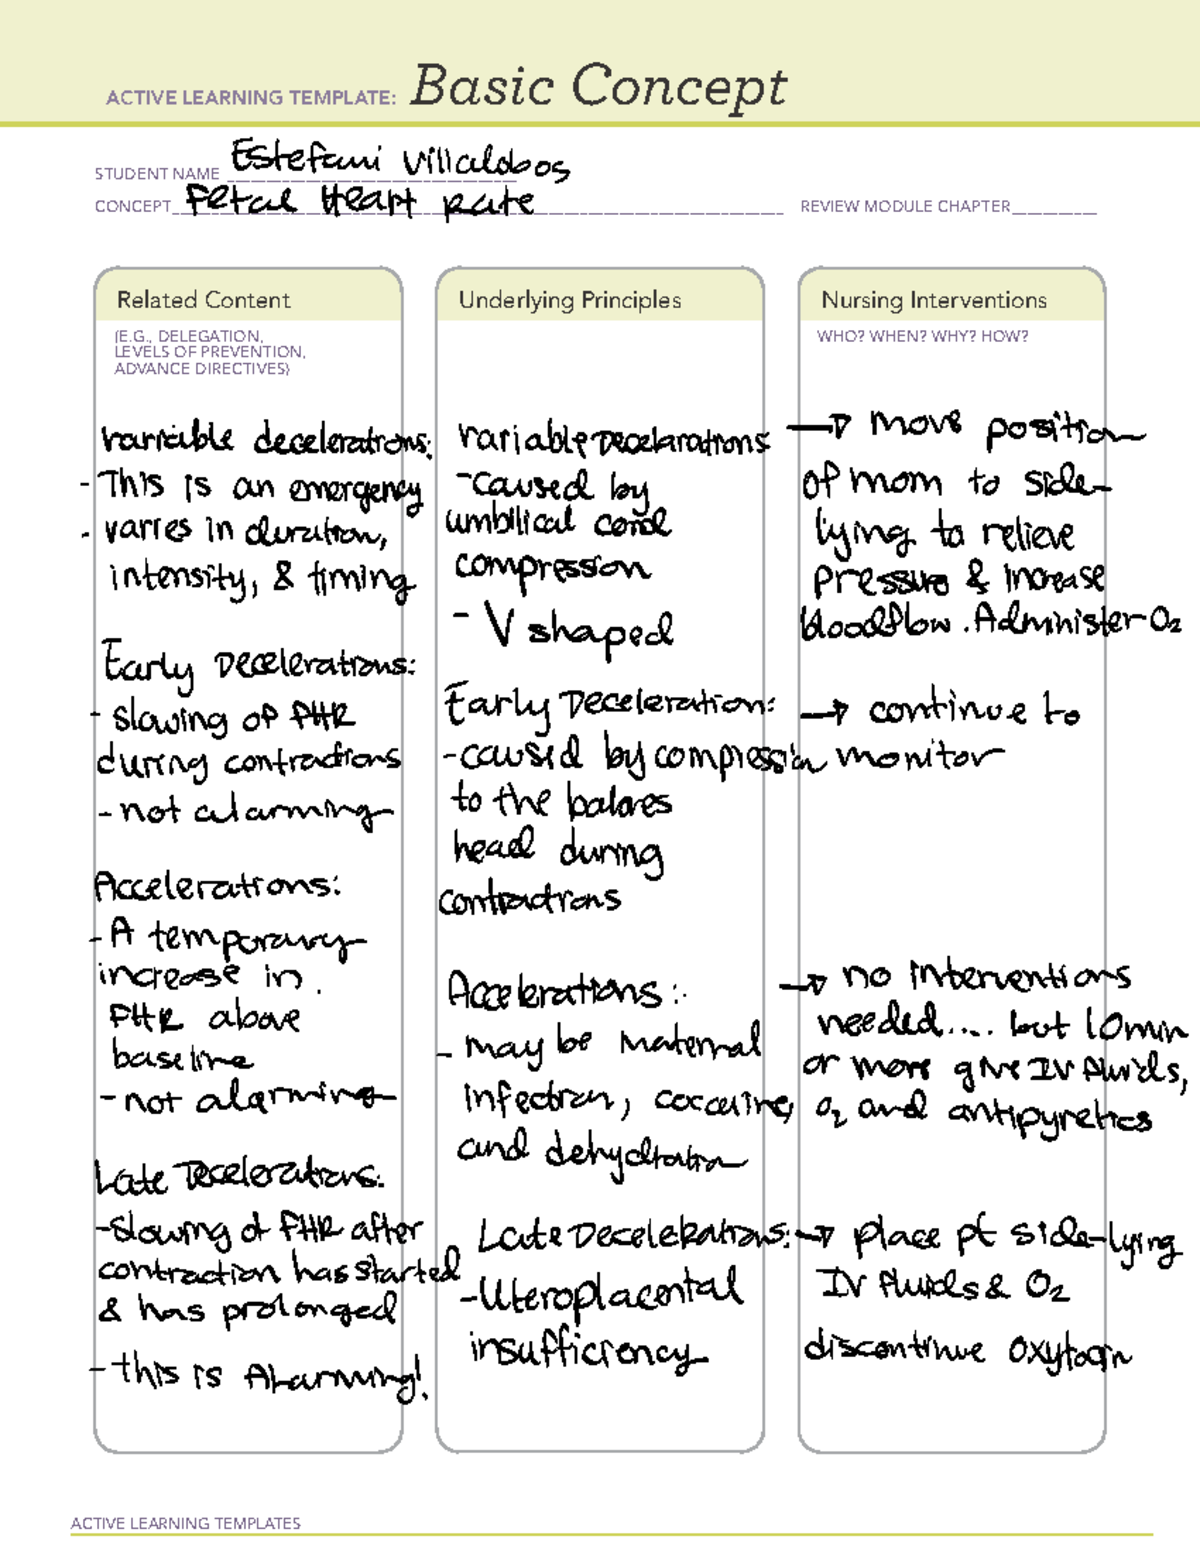 ACTIVE LEARNING TEMPLATE: Basic Concept
STUDENT NAME Estefani Villalobos
CONCEPT Fetal Heart Rate REVIEW MODULE CHAPTER
Related Content
(E.G., DELEGATION,
LEVELS OF PREVENTION,
ADVANCE DIRECTIVES)
variable decelerations:
- This is an emergency
- varies in duration,
intensity, & timing
Early Decelerations:
- slowing of FHR
during contractions
- not alarming
Accelerations:
- A temporary
increase in
FHR above
baseline
- not alarming
Late Decelerations:
- Slowing of FHR after
contraction has started
& has prolonged
- this is Alarming!
Underlying Principles
variable Decelarations
- caused by
umbilical cord
compression
- V shaped
Early Deceleration:
- caused by compression
to the babies
head during
contractions
Accelerations:
- may be maternal
infection, cocaine,
and dehydration
Late Decelerations:
- Uteroplacental
insufficiency
Nursing Interventions
WHO? WHEN? WHY? HOW?
→ move position
of mom to side-
lying to relieve
pressure & increase
bloodflow. Administer O2
→ continue to
monitor
→ no interventions
needed.... but 10min
or more give IV fluids,
O2 and antipyretics
→ place pt side-lying
IV fluids & O2
discontinue oxytocin
ACTIVE LEARNING TEMPLATES